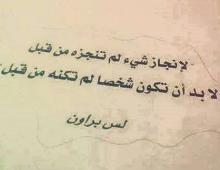 لإنجاز شيء لم تنجزه من قبل
لا بد أن تكون شخصا لم تكنه من قبل
لس براون